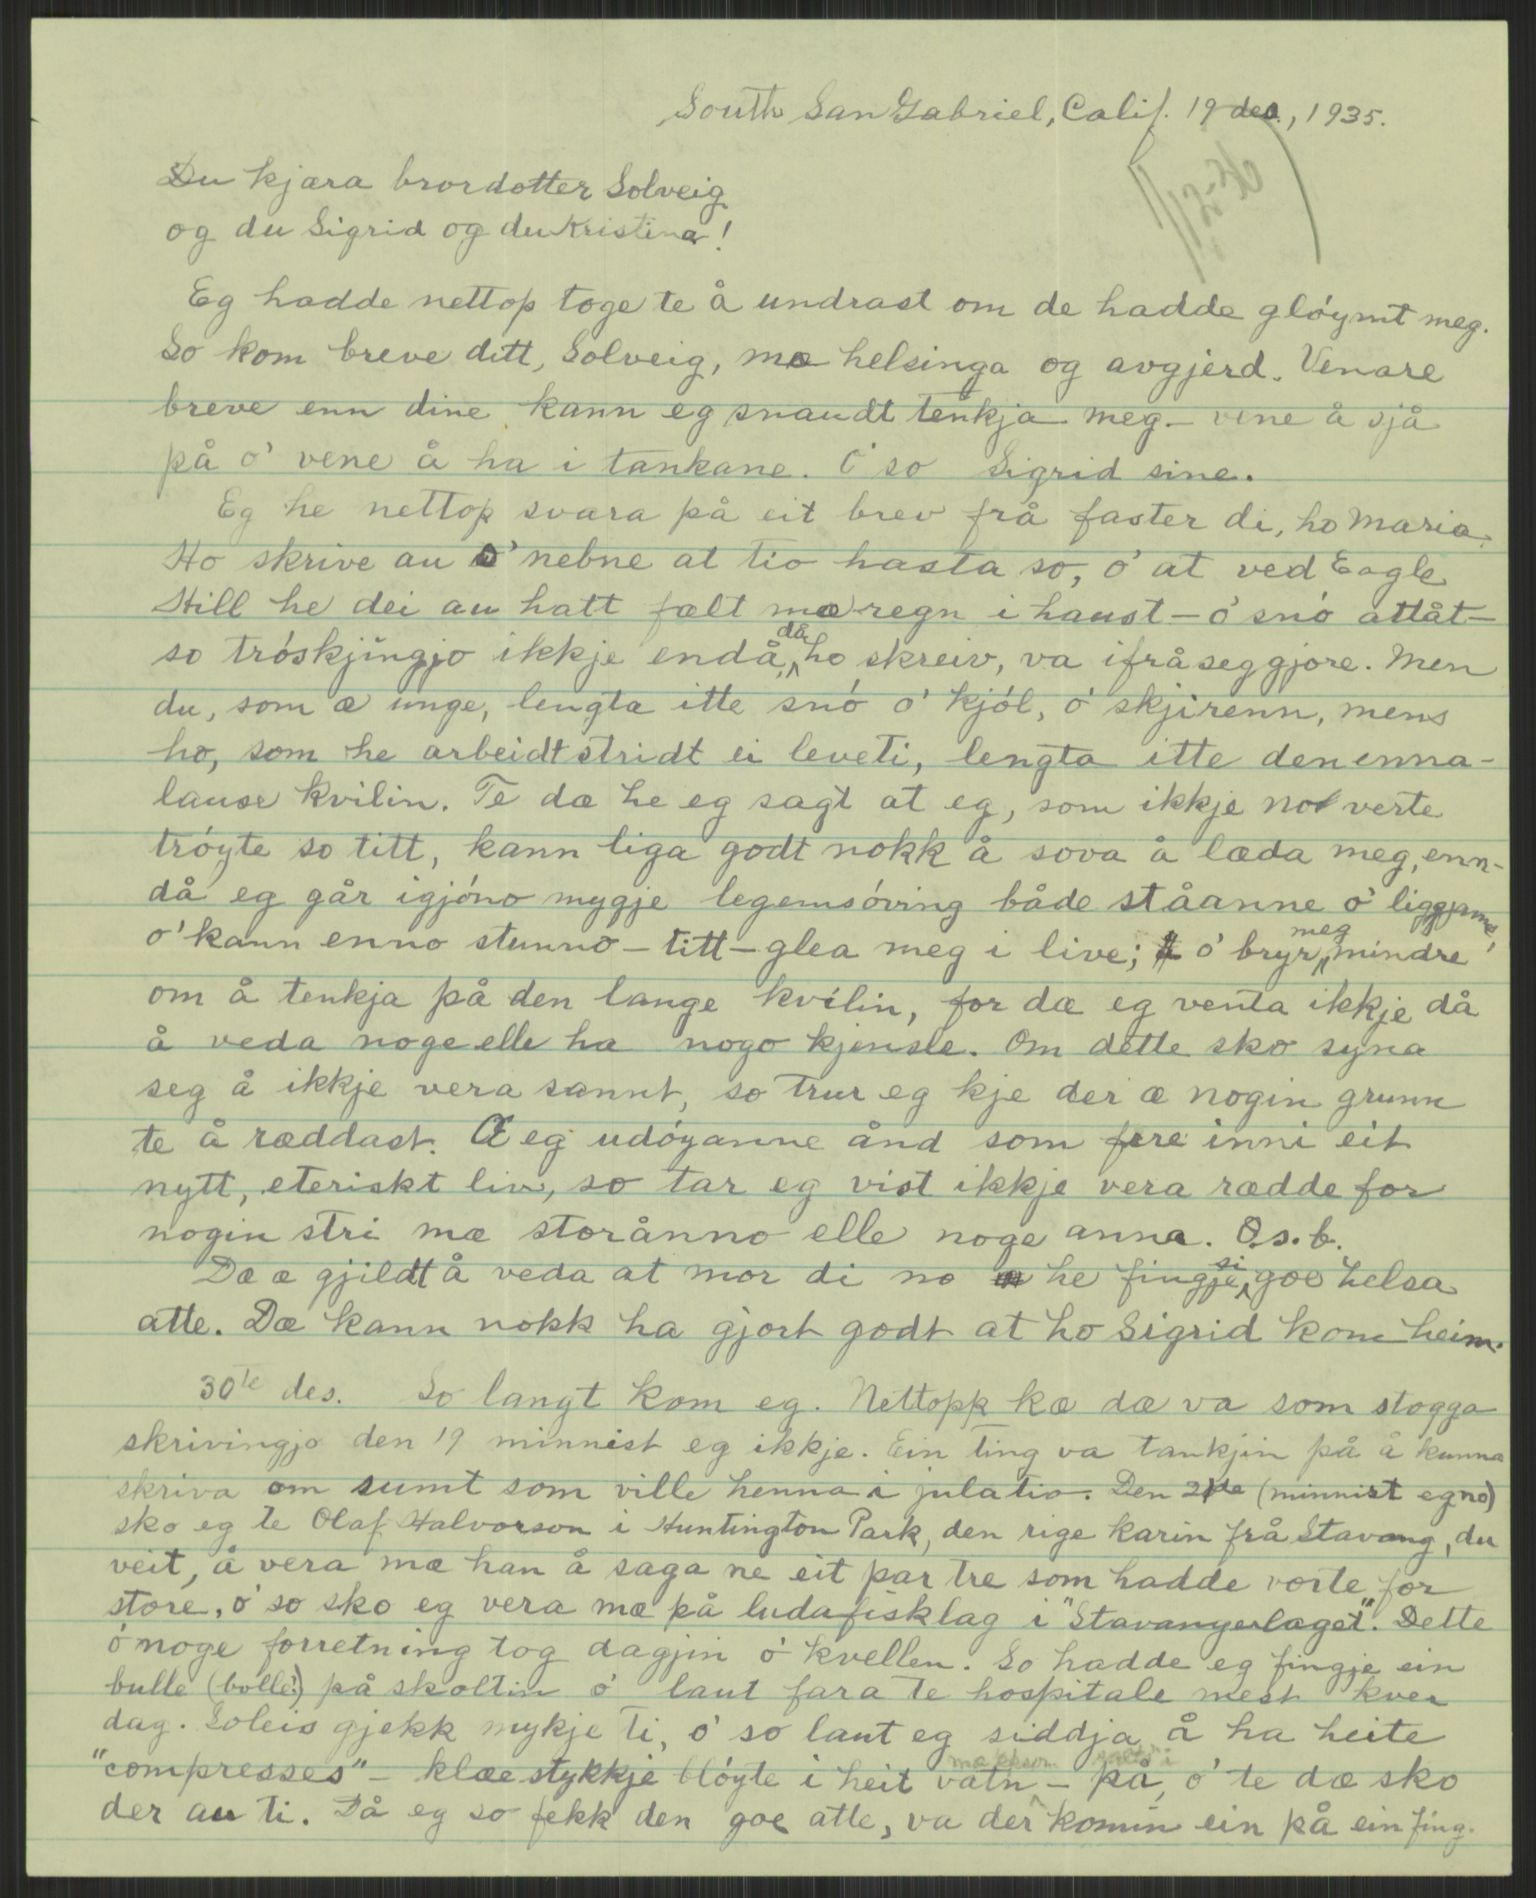 South San Gabriel, Calif. 19 des., 1935.
1/12-36
Du kjæra brordotter Solveig
og du Sigrid og du Kristina!
Eg hadde nettop toge te å undrast om de hadde gløymt meg.
So kom breve ditt, Solveig, mæ helsinga og avgjerd. Venare
breve enn dine kann eg snaudt tenkja meg - vene å sjå
på o' vene å ha i tankane. O' so Sigrid sine.
Eg he nettop svara på eit brev frå faster di, ho Maria.
Ho skrive au o' nebne at tio hasta so, o' at ved Eagle
Hill he dei au hatt fælt mæ regn i haust - o' snó attåt -
so tróskjingjo ikkje endå, då ho skreiv, va ifråseggjore. Men
du, som æ unge, lengta itte snó o' kjól, o' skjirenn, mens
ho, som he arbeidt stridt ei leveti, lengta itte den enna-
lause kvilin. Te dæ he eg sagt at eg, som ikkje no verte
tróyte so titt, kann liga godt nokk å sova å læda meg, enn-
då eg går igjóno mygje legemsóving både ståanne o' liggjanne,
o' kann enno stunno - titt - glea meg i live; o' bryr meg mindre
om å tenkja på den lange kvilin, for dæ eg venta ikkje då
å veda noge elle ha nogo kjensle. Om dette sko syna
seg å ikkje vera sannt, so trur eg kje der æ nogin grunn
te å ræddast. Æ eg udóyanne ånd som fere inni eit
nytt, eteriskt liv, so tar eg vist ikkje vera rædde for
nogin stri mæ storånno elle noge anna. O.s.b.
Dæ æ gjildt å veda at mor di no he fingje si goe helsa
atte. Dæ kann nokk ha gjort godt at ho Sigrid kom heim.
30te des. So langt kom eg. Nettopp kæ dæ va som stogga
skrivingjo den 19 minnist eg ikkje. Ein ting va tankjin på å kunna
skriva om sumt som ville henna i julatio. Den 21de (minnist eg no)
sko eg te Olaf Halvorson i Huntington Park, den rige karin frå Stavang, du
veit, å vera mæ han å saga ne eit par tre som hadde vorte for
store, o' so sko eg vera mæ på ludafisklag i "Stavangerlaget". Dette
o' noge forretning tog dagjin o' kvellen. So hadde eg fingje ein
bulle (bolle?) på skoltin o' laut fara te hospitale mest kver
dag. Soleis gjekk mykje ti, o' so laut eg siddja å ha heite
"compresses" - klæestykkje bløyte i heit vatn - på, o' te dæ sko
der au ti. Då eg so fekk den goe atte, va der komin ein på ein fing-